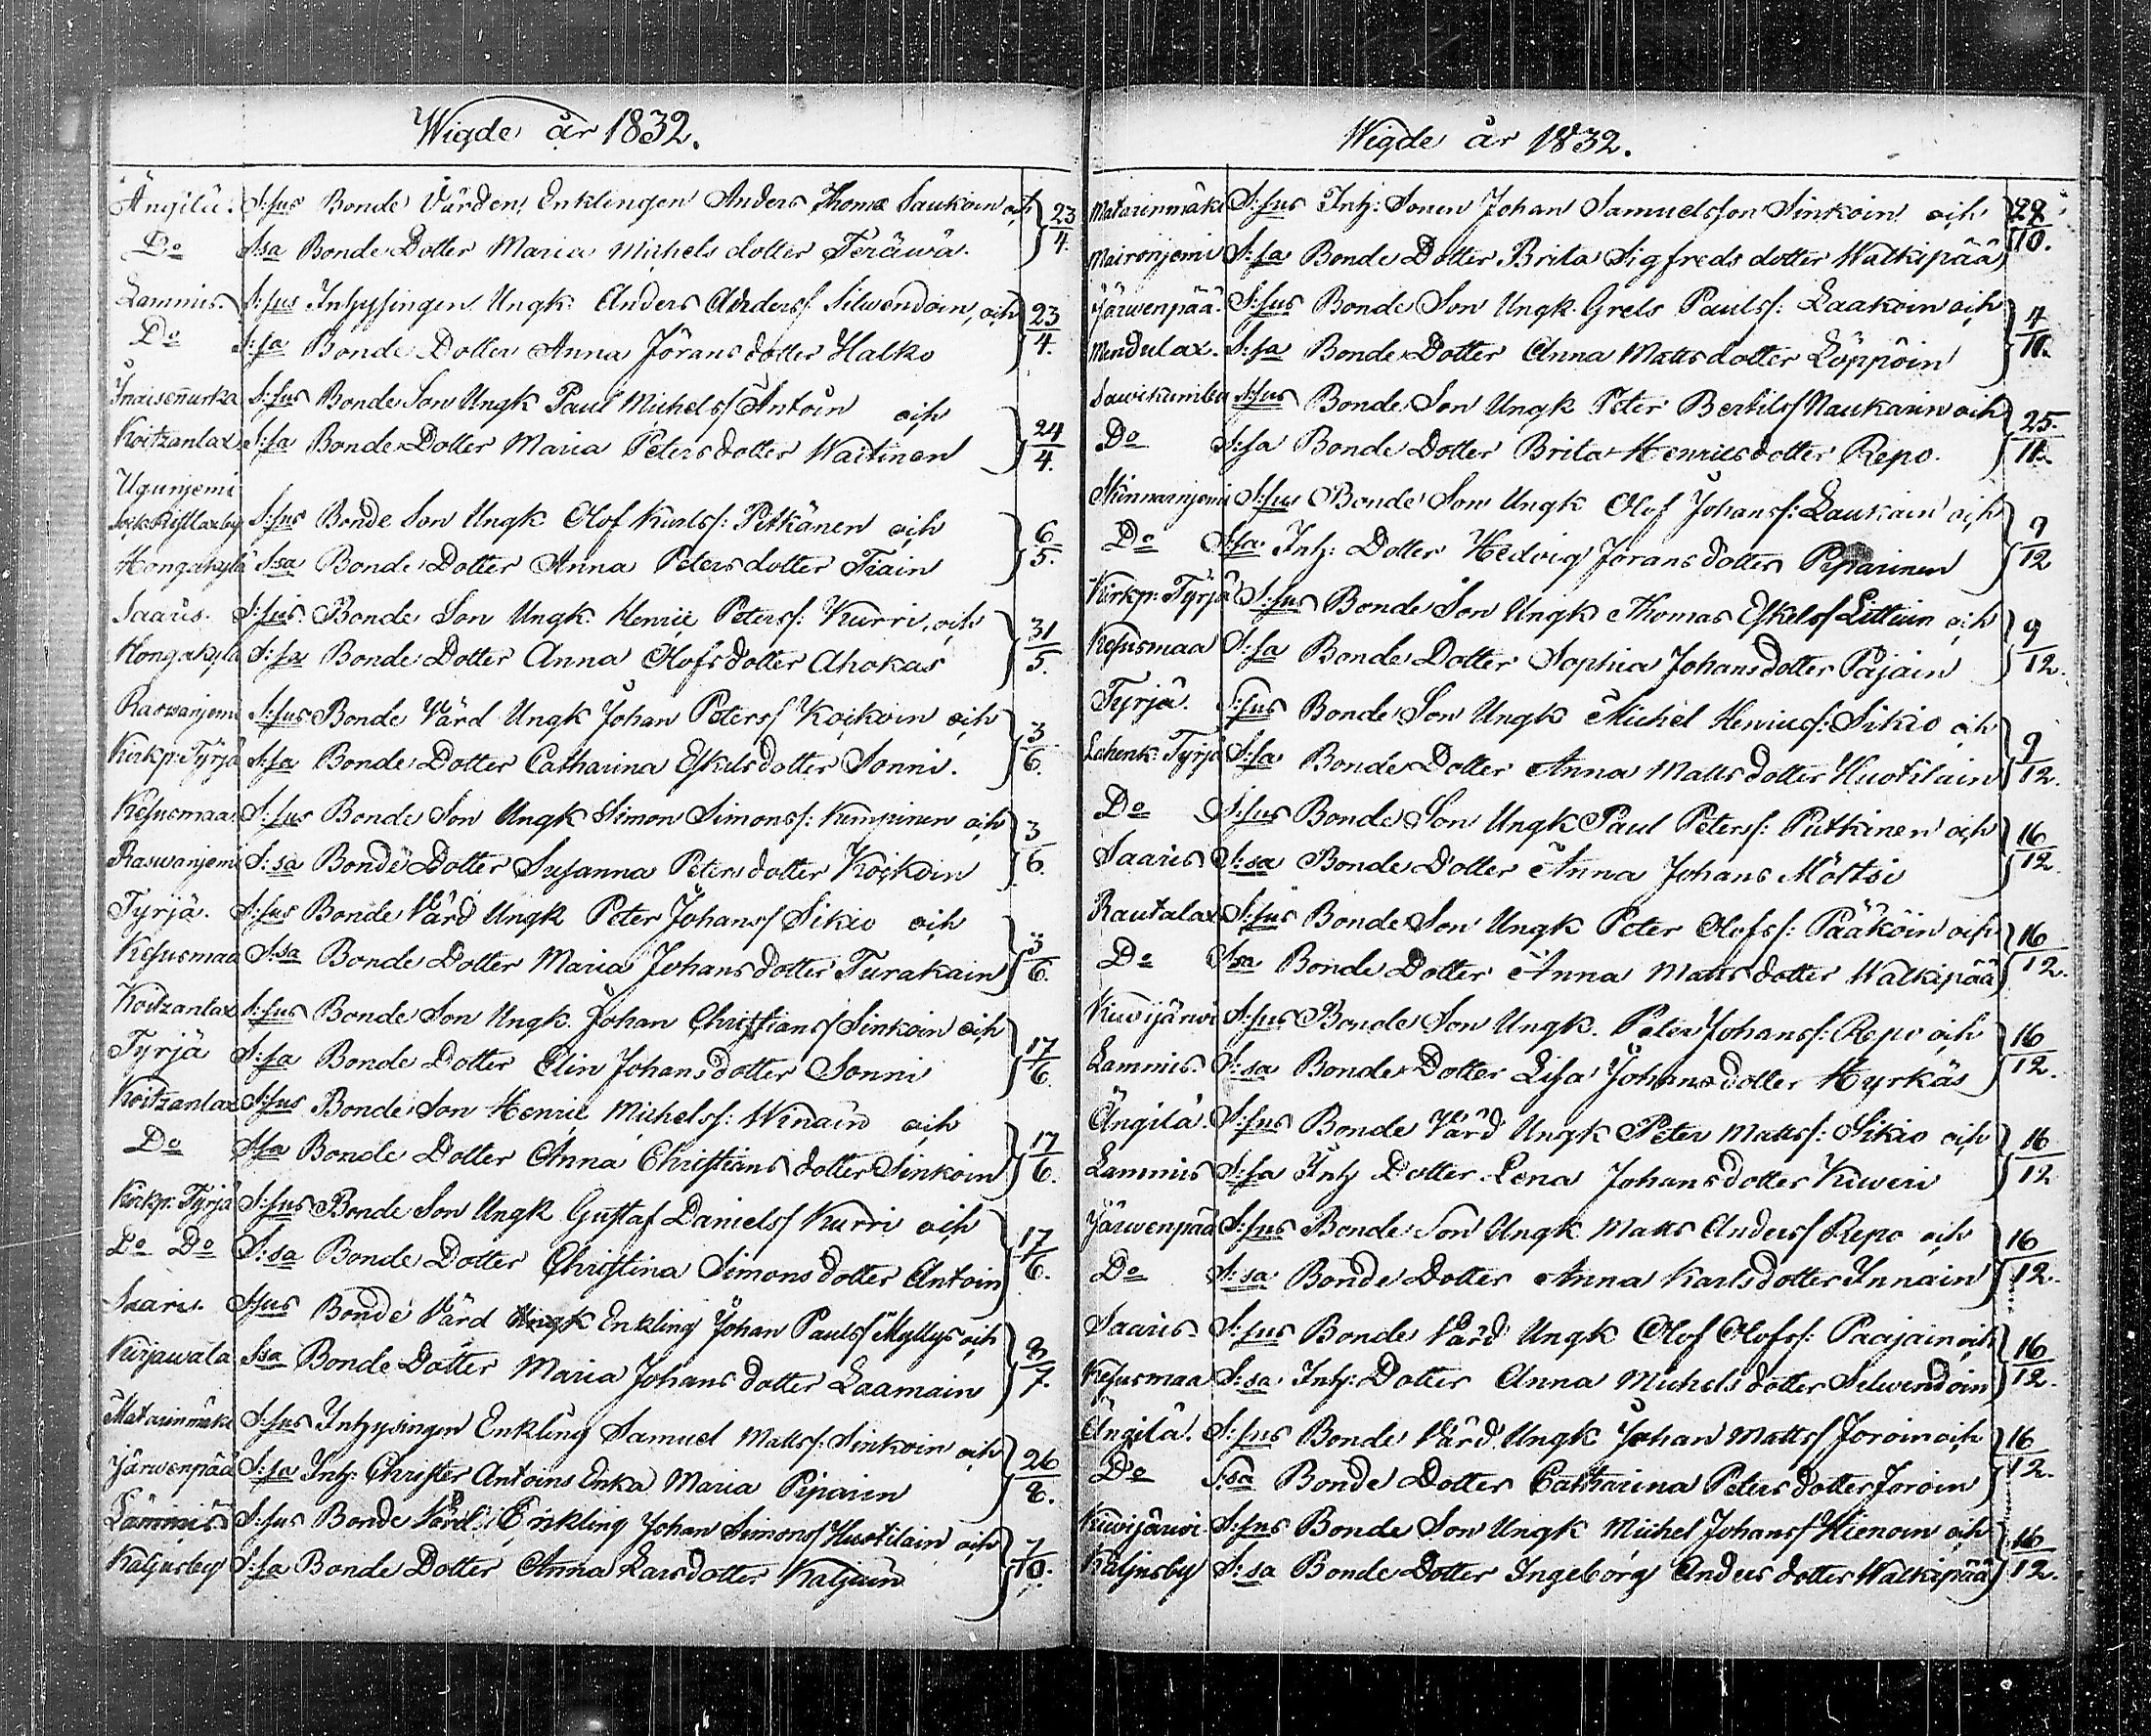 Wigde år 1832.
Ängilä. S:sus Bonde Värden Enklingen Anders Thomæ Saukoin och } 23/4.
Do S:sa Bonde Dotter Maria Michelsdotter Teräwä.
Lammis. S:sus Inhysingen Ungk: Anders Anderss: Silwendoin, och } 23/4.
Do S:sa Bonde Dotter Anna Jöransdotter Halko
S:sus Bonde Son Ungk Paul Michelss Antoin och } 24/4.
Koitzanlax S:sa Bonde Dotter Maria Petersdotter Waitinen
Ugunjemi
S:sus Bonde Son Ungk Olof Karlss: Pitkänen och } 6/5.
Hongakylä S:sa Bonde Dotter Anna Petersdotter Tiain
Saaris. S:sus Bonde Son Ungk Henric Peterss: Kurri, och } 31/5.
Hongakylä S:sa Bonde Dotter Anna Olofsdotter Ahokas
Raswanjemi S:sus Bonde Värd Ungk Johan Peterss Koikoin och } 3/6.
Kirkp: Tyrjä S:sa Bonde Dotter Catharina Eskelsdotter Sonni.
Kesusmaa S:sus Bonde Son Ungk Simon Simonss: Kempinen och } 3/6.
Raswanjemi S:sa Bonde Dotter Susanna Petersdotter Koikoin
Tyrjä. S:sus Bonde Värd Ungk Peter Johanss Sikio och } 3/6.
Kesusmaa S:sa Bonde Dotter Maria Johansdotter Turakain
Koitzanlax S:sus Bonde Son Ungk. Johan Christianss Sinkoin och } 17/6.
Tyrjä S:sa Bonde Dotter Elin Johansdotter Sonni
Koitzanlax S:sus Bonde Son Henric Michelss: Winain och } 17/6.
Do S:sa Bonde Dotter Anna Christiansdotter Sinkoin
Kirkp: Tyrjä S:sus Bonde Son Ungk Gustaf Danielss Kurri och } 17/6.
Do Do S:sa Bonde Dotter Christina Simonsdotter Antoin
Saaris. S:sus Bonde Värd Ungk Enkling Johan Paulss Myllys och } 8/7.
Kirjawala S:sa Bonde Dotter Maria Johansdotter Laamain
Matarinmäki S:sus Inhysingen Enkling Samuel Mattss: Sinkoin och } 26/8.
Järwenpää S:sa Inh: Christer Antoins Enka Maria Piparin
Lammis S:sus Bonde Värd: Enkling Johan Simonss Huotilain och } 7/10.
Kaljusby S:sa Bonde Dotter Anna Larsdotter Kaljuin
Wigde år 1832.
Matarinmäki S:sus Inh: Sonen Johan Samuelsson Sinkoin och } 28/10.
Maironjemi S:sa Bonde Dotter Brita Sigfredsdotter Walkipää
Järwenpää. S:sus Bonde Son Ungk. Grels Paulss: Laakoin och } 4/11.
Mendulax. S:sa Bonde Dotter Anna Mattsdotter Löppöin
S:sus Bonde Son Ungk Peter Bertilss Naukarin och } 25/11.
Do S:sa Bonde Dotter Brita Henricsdotter Repo.
Skinnarinjemi S:sus Bonde Son Ungk Olof Johanss: Laukain och } 9/12
Do S:sa Inh: Dotter Hedvig Jöransdotter Piparinen
Kirkp: Tyrjä S:sus Bonde Son Ungk Thomas Eskelss Littuin och } 9/12.
Kesusmaa S:sa Bonde Dotter Sophia Johansdotter Pajain
Tyrjä. S:sus Bonde Son Ungk Michel Henricss: Sikio och } 9/12.
Lahenk: Tyrjä S:sa Bonde Dotter Anna Mattsdotter Huotilain
Do S:sus Bonde Son Ungk Paul Peterss: Putkinen och } 16/12.
Saaris S:sa Bonde Dotter Anna Johans Möltsi
Rautalax S:sus Bonde Son Ungk Peter Olofss: Pääköin och } 16/12.
Do S:sa Bonde Dotter Anna Mattsdotter Walkipää
Kiwijärwi S:sus Bonde Son Ungk. Peter Johanss: Repo och } 16/12.
Lammis. S:sa Bonde Dotter Lisa Johansdotter Hyrkäs
Ängilä. S:sus Bonde Värd Ungk Peter Mattss: Sikio och } 16/12
Lammis S:sa Inh Dotter Lena Johansdotter Kiweri
Järwenpää S:sus Bonde Son Ungk Matts Anderss Repo och } 16/12.
Do S:sa Bonde Dotter Anna Karlsdotter Innain
Saaris. S:sus Bonde Värd Ungk Olof Olofss: Paajain och } 16/12.
Kesusmaa S:sa Inh: Dotter Anna Michelsdotter Silwendoin
Ängilä. S:sus Bonde Värd Ungk Johan Mattss Joroin och } 16/12.
Do S:sa Bonde Dotter Catharina Petersdotter Joroin
Kiwijärwi S:sus Bonde Son Ungk Michel Johanss Hienoin och } 16/12.
Kaljusby S:sa Bonde Dotter Ingeborg Andersdotter Walkipää